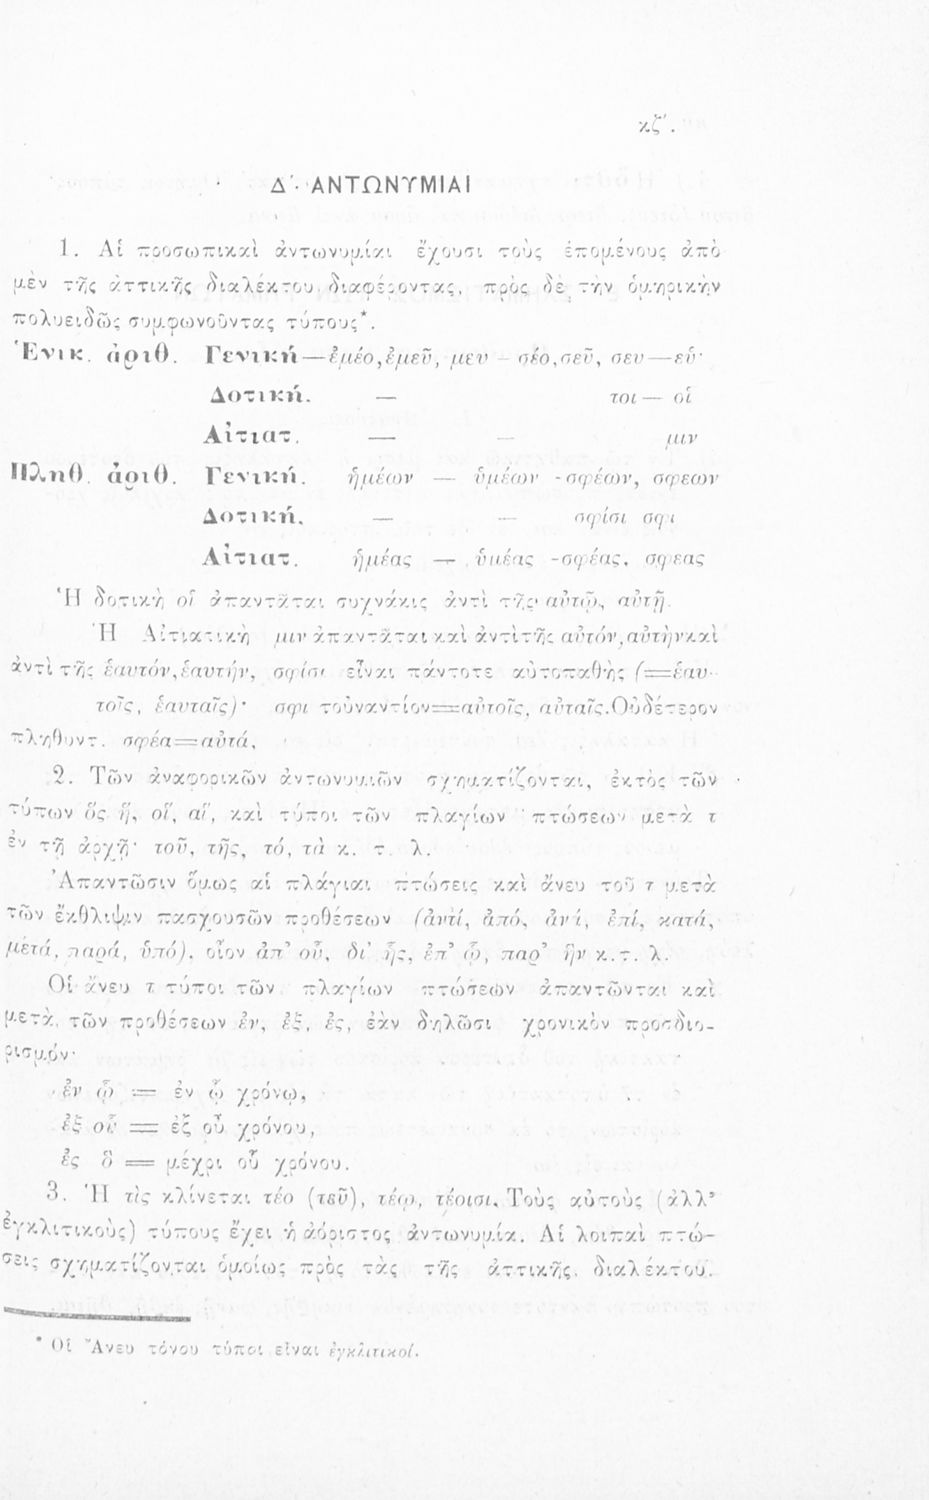 κζ΄.
Δ΄. ΑΝΤΩΝΥΜΙΑΙ
1. Αἱ προσωπικαὶ ἀντωνυμίαι ἔχουσι τοὺς ἑπομένους ἀπὸ
μὲν τῆς ἀττικῆς διαλέκτου διαφέροντας, πρὸς δὲ τὴν ὁμηρικὴν
πολυειδῶς συμφωνοῦντας τύπους*.
Ἑνικ. ἀριθ. Γενική — ἐμέο, ἐμεῦ, μευ — σέο, σεῦ, σευ — εὑ·
Δοτική. — τοι — οἱ
Αἰτιατ. — — μιν
Πληθ. ἀριθ. Γενική. ἡμέων — ὑμέων - σφέων, σφεων
Δοτική. — — σφίσι σφι
Αἰτιατ. ἡμέας — ὑμέας - σφέας, σφεας
Ἡ δοτικὴ οἱ ἀπαντᾶται συχνάκις ἀντὶ τῆς αὐτῷ, αὐτῇ.
Ἡ Αἰτιατικὴ μιν ἀπαντᾶται καὶ ἀντὶ τῆς αὐτόν, αὐτὴν καὶ
ἀντὶ τῆς ἑαυτόν, ἑαυτήν, σφίσι εἶναι πάντοτε αὐτοπαθὴς (=ἑαυ-
τοῖς, ἑαυταῖς)· σφι τοὐναντίον=αὐτοῖς, αὐταῖς. Οὐδέτερον
πληθυντ. σφέα=αὐτά.
2. Τῶν ἀναφορικῶν ἀντωνυμιῶν σχηματίζονται, ἐκτὸς τῶν
τύπων ὅς ἥ, οἵ, αἵ, καὶ τύποι τῶν πλαγίων πτώσεων μετὰ τ
ἐν τῇ ἀρχῇ· τοῦ, τῆς, τό, τὰ κ. τ. λ.
Ἀπαντῶσιν ὅμως αἱ πλάγιαι πτώσεις καὶ ἄνευ τοῦ τ μετὰ
τῶν ἔκθλιψιν πασχουσῶν προθέσεων (ἀντί, ἀπό, ἀνά, ἐπί, κατά,
μετά, παρά, ὑπό), οἷον ἀπ᾿ οὗ, δι᾿ ἧς, ἐπ᾿ ᾧ, παρ᾿ ἣν κ.τ. λ.
Οἱ ἄνευ τ τύποι τῶν πλαγίων πτώσεων ἀπαντῶνται καὶ
μετὰ τῶν προθέσεων ἐν, ἐξ, ἐς, ἐὰν δηλῶσι χρονικὸν προσδιο-
ρισμόν·
ἐν ᾧ = ἐν ᾧ χρόνῳ,
ἐξ οὗ = ἐξ οὗ χρόνου,
ἐς ὃ = μέχρι οὗ χρόνου.
3. Ἡ τὶς κλίνεται τέο (τεῦ), τέῳ, τέοισι. Τοὺς αὐτοὺς (ἀλλ᾿
ἐγκλιτικοὺς) τύπους ἔχει ἡ ἀόριστος ἀντωνυμία. Αἱ λοιπαὶ πτώ-
σεις σχηματίζονται ὁμοίως πρὸς τὰς τῆς ἀττικῆς διαλέκτου.
* Οἱ Ἄνευ τόνου τύποι εἶναι ἐγκλιτικοί.